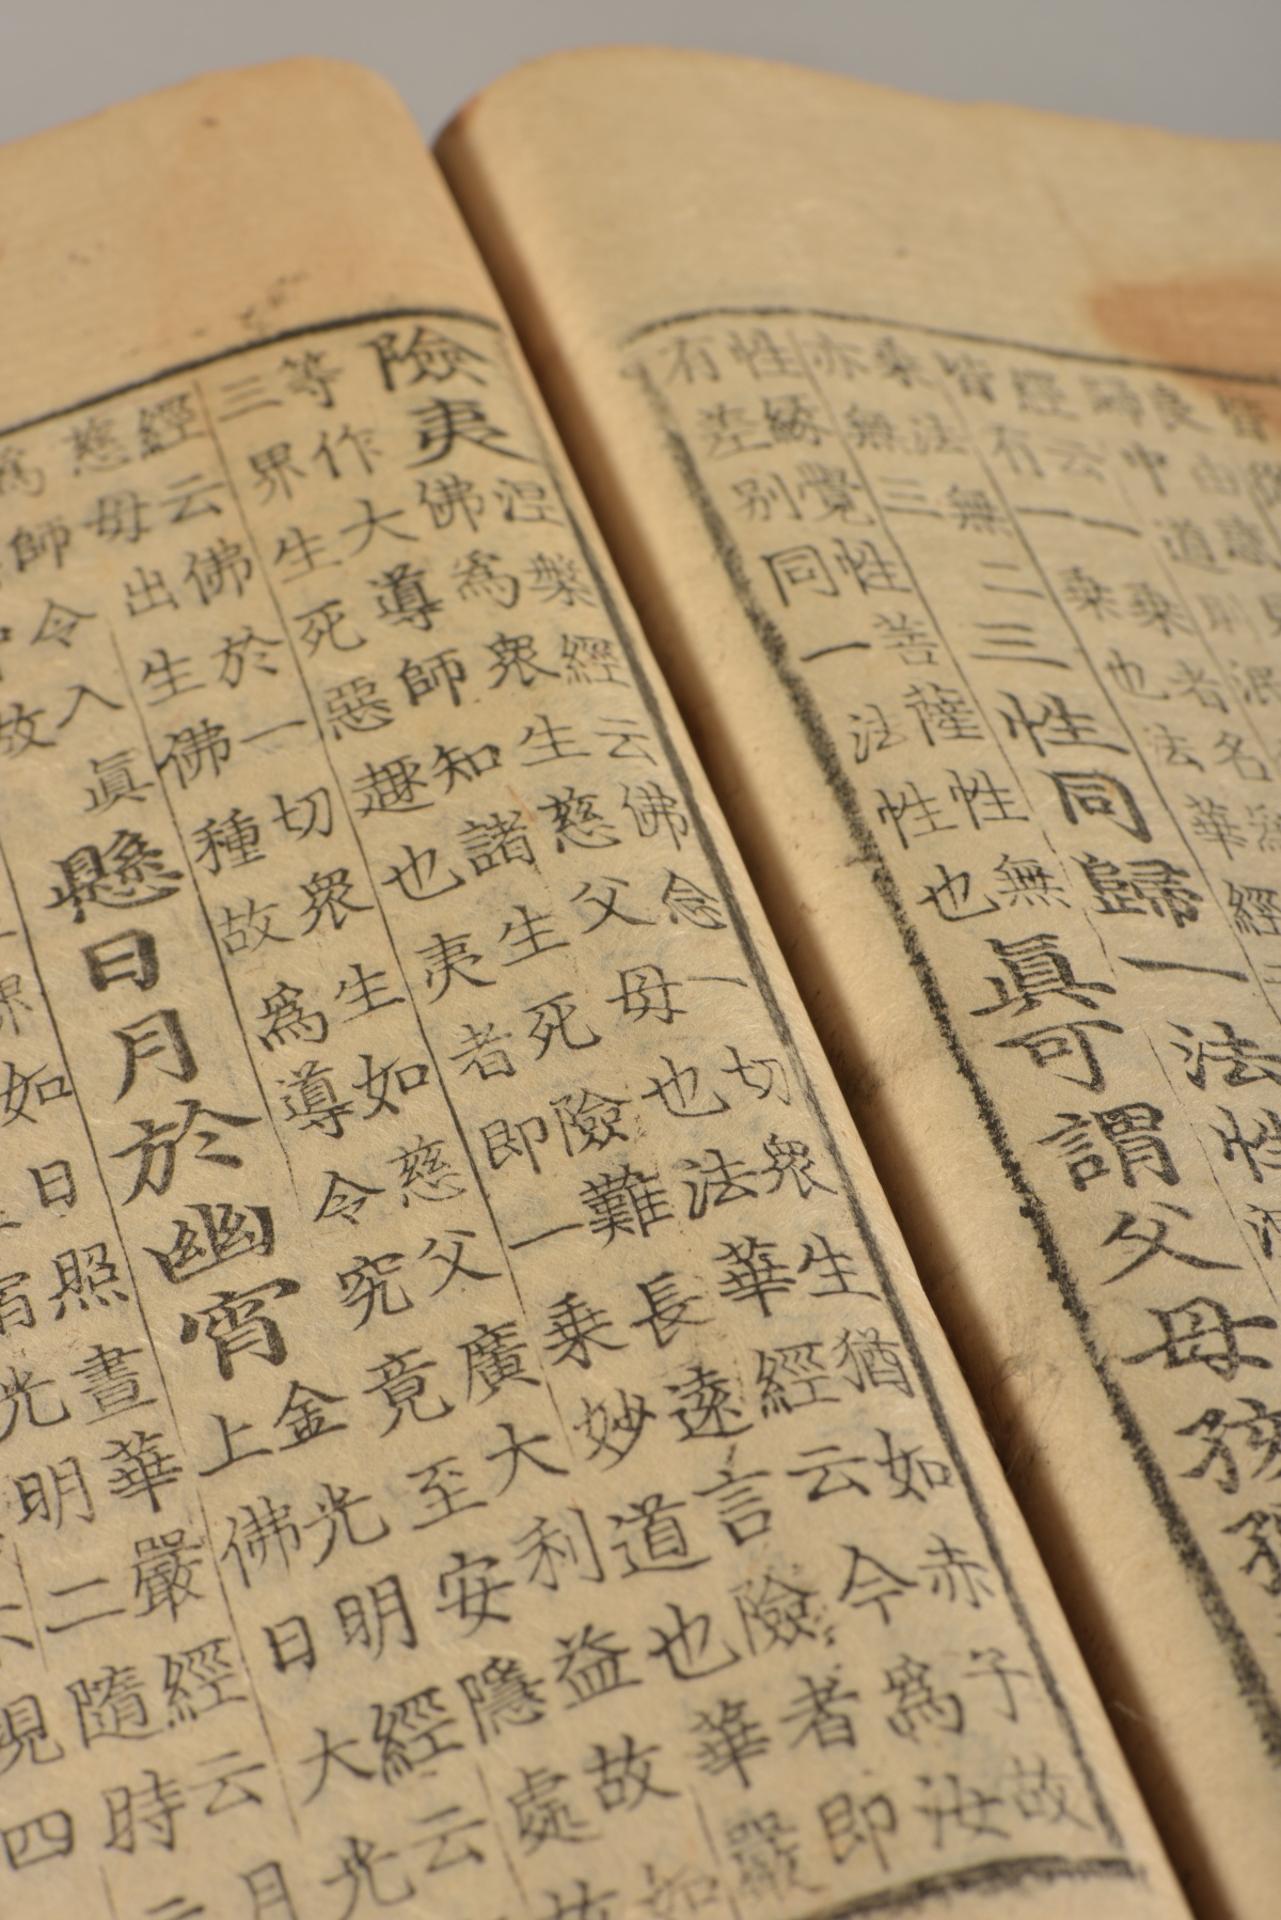 良由惑見
歸中道則泯
經云一乘者名
皆有一乘也法華經
乘法無二
亦無三
三性同歸一法性
性緣覺性菩薩性無
有差别同一法性也
眞可謂父母孩
險夷
涅槃經云佛念一切衆生猶如赤子故
佛爲衆生慈父母也法華經云今爲汝
等作大導師知諸生死險難長遠言險者即
三界生死惡趣也夷者即一乘妙道也華嚴
經云佛於一切衆生如慈父廣大利益故如
慈母出生佛種故爲導令究竟至安隱處故
爲師令入眞
故
懸日月於幽宵
金光明經云
上佛日大光
如日照晝華嚴經云月
宵光明二隨時
現四